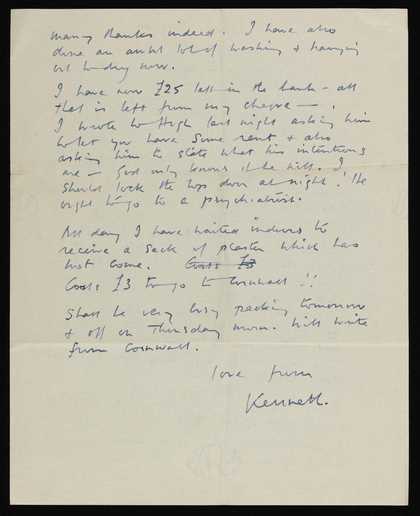 many thanks indeed. I have also
done an awful lot of washing & hanging
out laundry now.
I have now £25 left in the bank – all
that is left from my cheque – .
I wrote to Hugh last night asking him
to let you have some rent & also
asking him to state what his intentions
are – God only knows if he will. I
should lock the top door at night! He
ought to go to a psychiatrist.
All day I have waited indoors to
receive a sack of plaster which has
not come. Costs £3
Costs £3 to go to Cornwall !!
Shall be very busy packing tomorrow
& off on Thursday morn. Will write
from Cornwall.
love from
Kenneth.